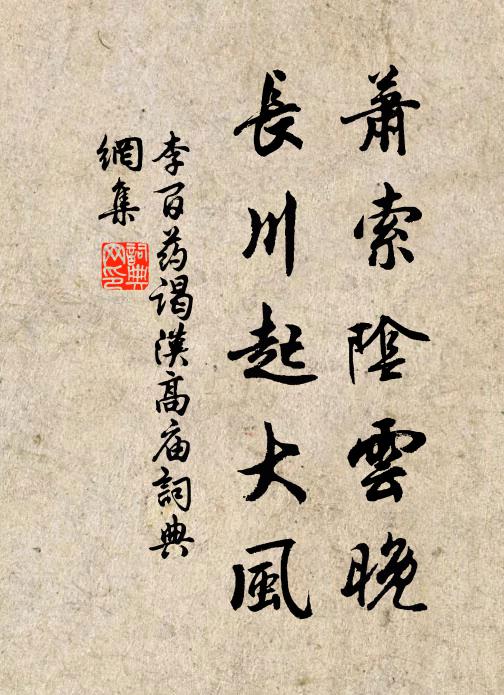 蕭索陰雲晚
長川起大風
李百药謁漢高庙詞典
網集
詞典
网印